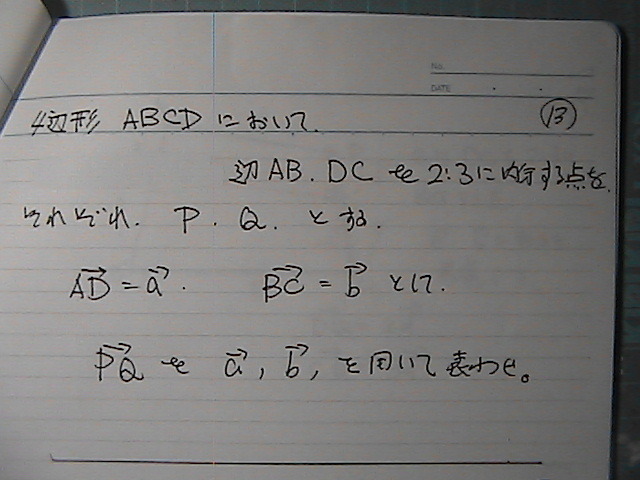 No.
DATE
4辺形 ABCD において. ⑬
辺 AB. DC を 2:3 に内分する点を.
それぞれ. P. Q. とする.
AD→ = a→. BC→ = b→ として.
PQ→ を a→, b→, を用いて表わせ。